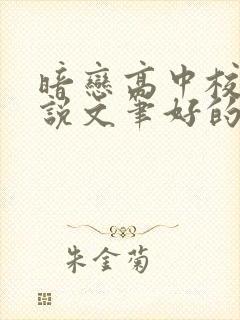 暗戀高中校
說文筆好的
朱金菊